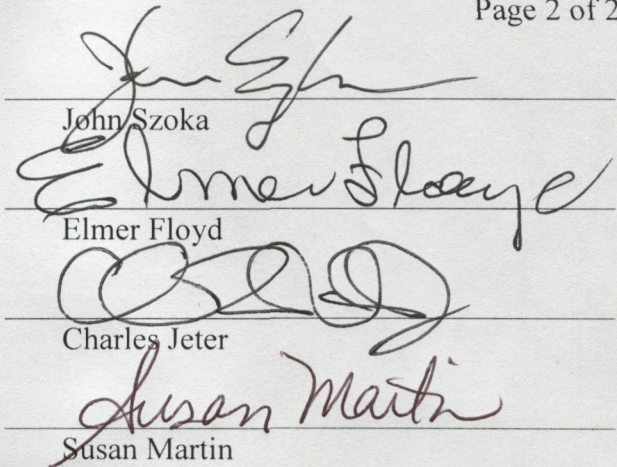 Page 2 of 2
John Szoka
Elmer Floyd
Elmer Floyd
Charles Jeter
Susan Martin
Susan Martin